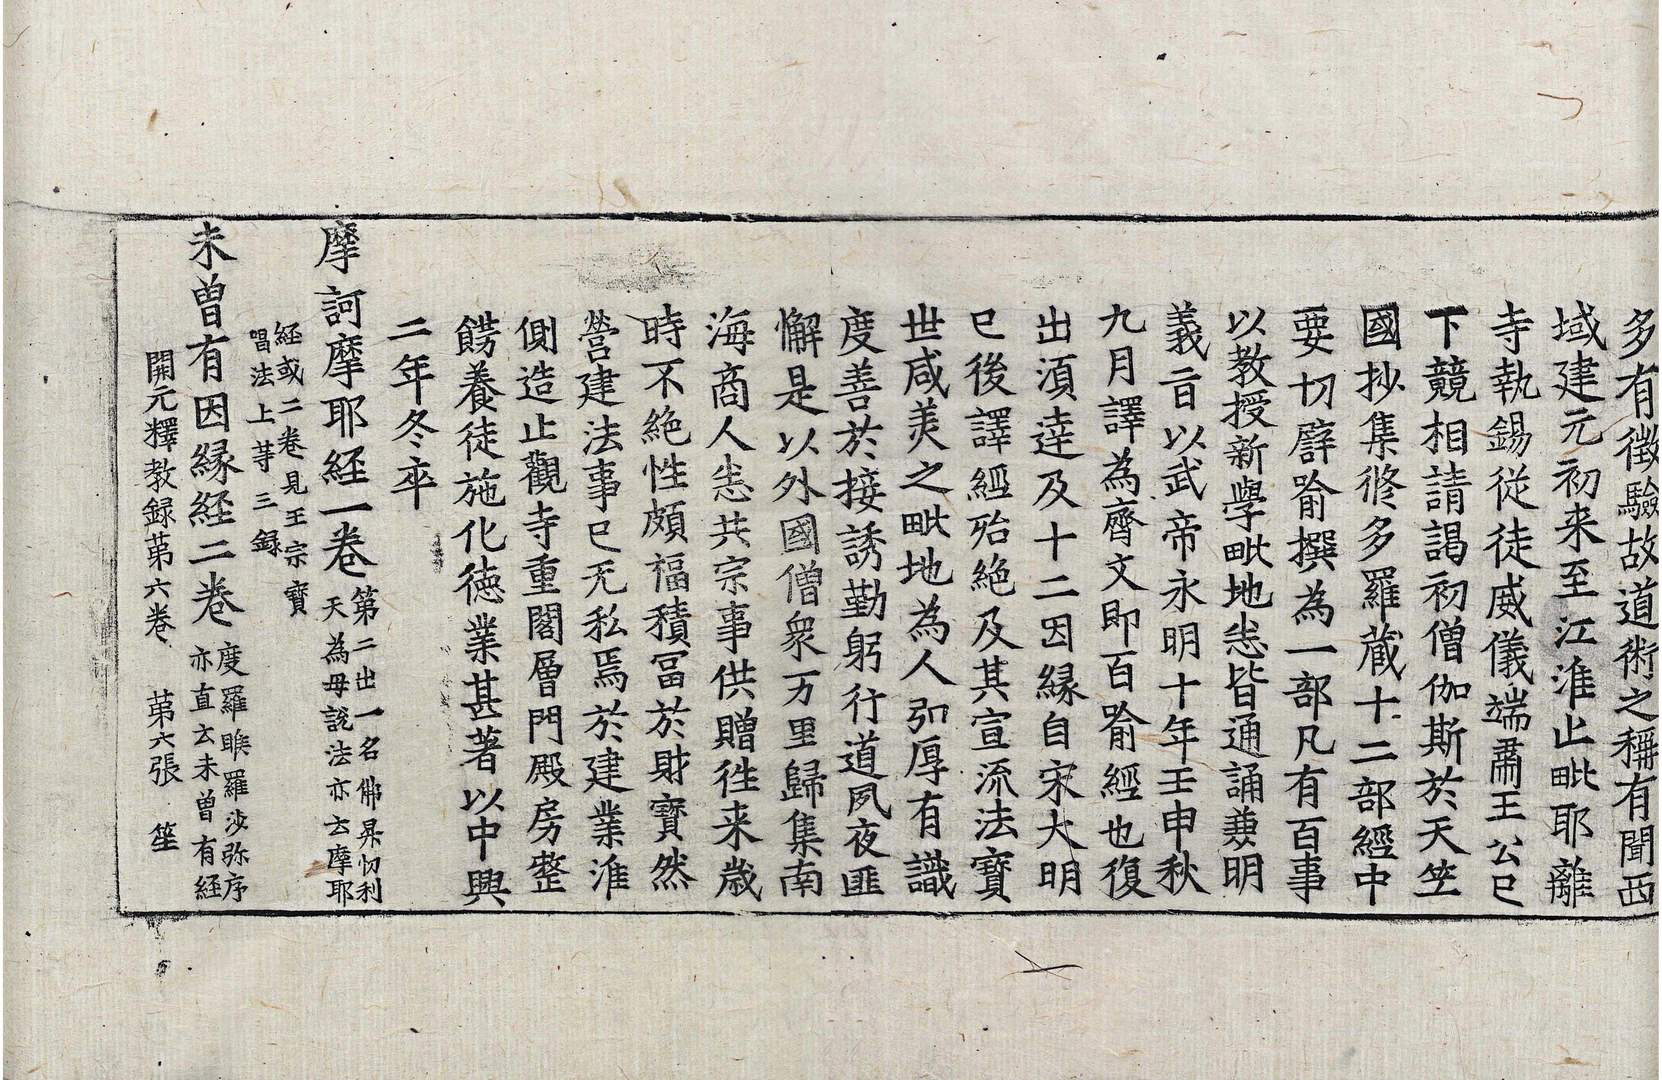 多有徵驗故道術之稱有聞西
域建元初来至江淮止毗耶離
寺執錫從徒威儀端肅王公已
下競相請謁初僧伽斯於天竺
國抄集修多羅蔵十二部經中
要切辟喻撰為一部凡有百事
以教授新學毗地悉皆通誦兼明
義旨以武帝永明十年壬申秋
九月譯為齊文即百喻經也復
出湏達及十二因緣自宋大明
已後譯經殆絶及其宣流法寶
世咸美之毗地為人弘厚有識
度善於接誘勤躬行道夙夜匪
懈是以外國僧衆万里歸集南
海商人悉共宗事供贈徃来歲
時不絶性頗福積冨於財寶然
營建法事已无私焉於建業淮
側造止觀寺重閣層門殿房整
餝養徒施化徳業甚著以中興
二年冬卒
摩訶摩耶経一卷 第二出一名佛昇忉利
天為母說法亦云摩耶
経或二卷見王宗寶
唱法上等三録
未曾有因縁経二卷 度羅睺羅沙弥序
亦直云未曾有経
開元釋教録苐六卷 苐六張 笙